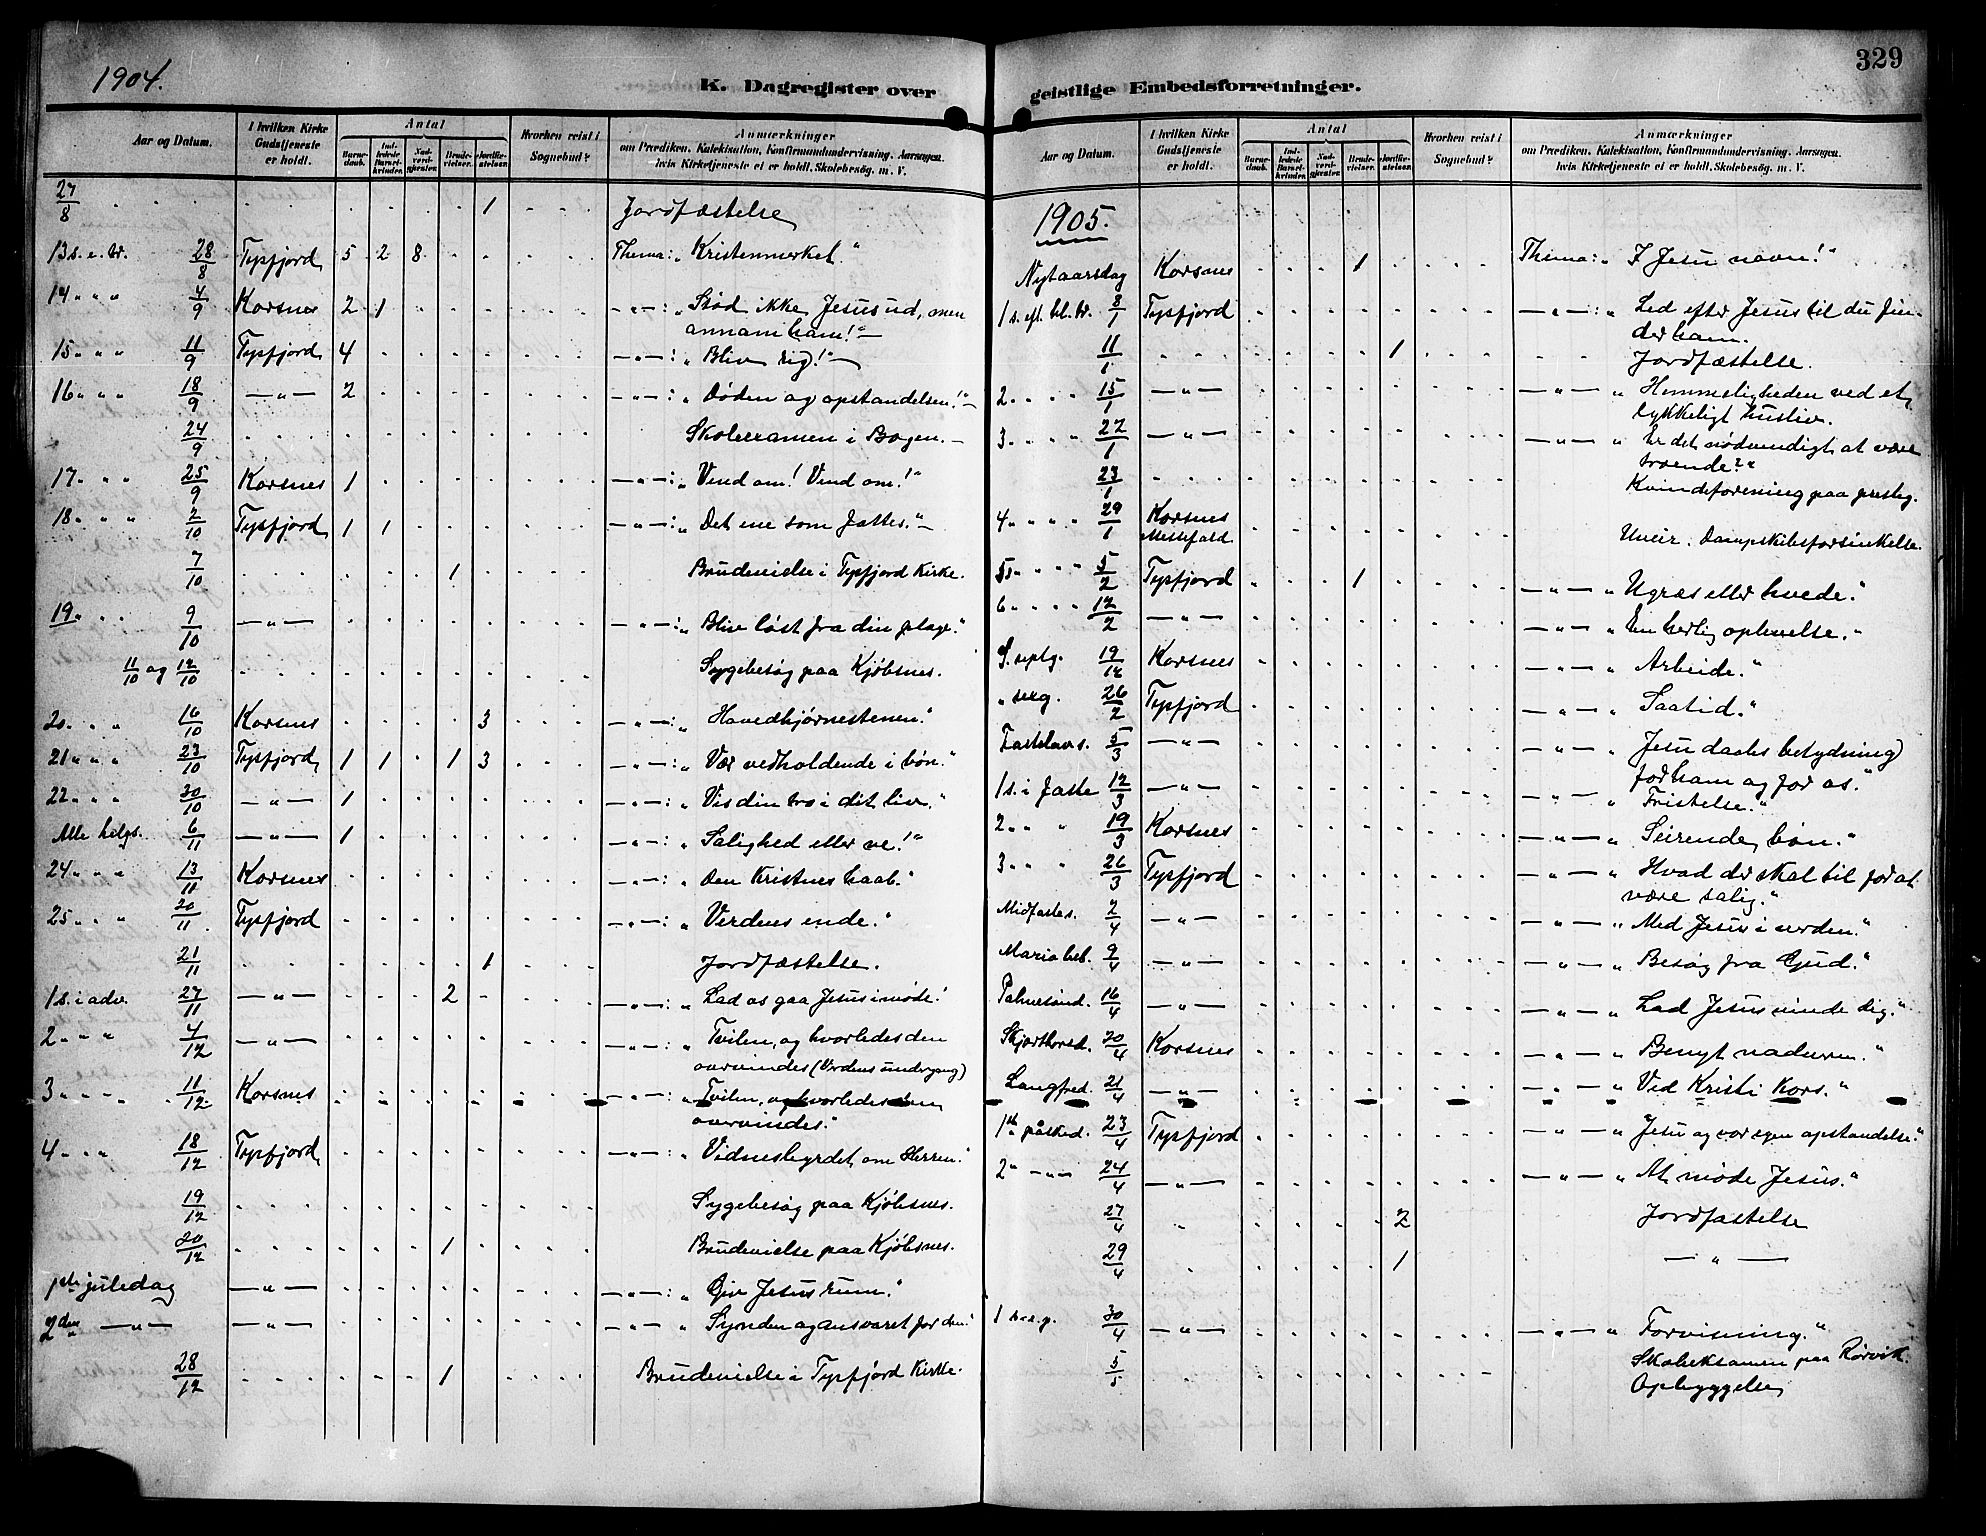 1904.
K. Dagregister over
Aar og Datum.
I hvilken Kirke Gudstjeneste er holdt.
Antal
Barnedaab.
Indledede Barselkvinder.
Nadverdgjester.
Brudevielser.
Jordfæstelser.
Hvorhen reist i Sognebud?
Anmærkninger
om Prædiken, Katekisation, Konfirmandundervisning, Aarsagen,
hvis Kirketjeneste ei er holdt, Skolebesøg m. V.
27/8 1 Jordfæstelse
13 s. e. tr. 28/8 Tysfjord 5 2 8 Thema: „Kristenmerket.“
14 „ „ „ 4/9 Korsnes 2 1 —„—: „Stød ikke Jesus ud, men
annam ham!“—
15 „ „ „ 11/9 Tysfjord 4 —„—: „Bliv rig!“—
16 „ „ „ 18/9 —„— 2 —„—: „Døden og opstandelsen!“—
24/9 Skoleexamen i Bogen.—
17 „ „ „ 25/9 Korsnes 1 —„—: „Vend om! Vend om!“
18 „ „ „ 2/10 Tysfjord 1 1 —„—: „Det ene som fattes.“—
7/10 1 Brudevielse i Tysfjord Kirke.
19 „ „ „ 9/10 —„— —„—: „Bliv løst fra din plage.“
11/10 og 12/10 Sygebesøg paa Kjøbsnes.
20 „ „ 16/10 Korsnes 3 —„—: „Hovedhjørnestenen.“
21 „ „ „ 23/10 Tysfjord 1 1 1 3 —„—: „Vær vedholdende i bøn.“
22 „ „ „ 30/10 —„— 1 —„—: „Vis din tro i dit liv.“
Alle helgs. 6/11 —„— 1 —„—: „Salighed eller ve!“
24 „ „ „ 13/11 Korsnes —„—: „Den Kristnes haab.“
25 „ „ „ 20/11 Tysfjord —„—: „Verdens ende.“
21/11 1 Jordfæstelse.
1 s. i adv. 27/11 —„— 2 —„—: „Lad os gaa Jesus i møde!
2 „ „ „ 4/12 —„— —„—: „Tvilen, og hvorledes den
overvindes (Verdens undergang)
3 „ „ „ 11/12 Korsnes —„—: „Tvilen, og hvorledes den
overvindes.“
4 „ „ „ 18/12 Tysfjord —„—: „Vidnesbyrdet om Herren.“
19/12 Sygebesøg paa Kjøbsnes.
20/12 1 Brudevielse paa Kjøbsnes.
juledag —„— —„—: „Giv Jesus rum.“
2den —„— —„— —„— „Synden og ansvaret for den.“
28/12 1 Brudevielse i Tysfjord Kirke.
329
geistlige Embedsforretninger.
Aar og Datum.
I hvilken Kirke Gudstjeneste er holdt.
Antal
Barnedaab.
Indledede Barselkvinder.
Nadverdgjester.
Brudevielser.
Jordfæstelser.
Hvorhen reist i Sognebud?
Anmærkninger
om Prædiken, Katekisation, Konfirmandundervisning, Aarsagen,
hvis Kirketjeneste ei er holdt, Skolebesøg, m. V.
1905.
Nytaarsdag Korsnes 1 Thema: „I Jesu navn!“
1 s. eft. hl. tr. 8/1 Tysfjord —„—: „Led efter Jesus til du fin-
der ham.
11/1 1 Jordfæstelse.
2 „ „ „ 15/1 —„— —„— „Hemmeligheden ved et
lykkeligt husliv.
3 „ „ „ 22/1 —„— —„— „Er det nødvendigt at være
troende?“
23/1 Kvindeforening paa prestg.
4 „ „ „ 29/1 Korsnes
Messefald Uveir. Dampskibsforsinkelse.
5 „ „ „ 5/2 Tysfjord 1 —„— „Ugræs eller hvede.“
6 „ „ „ 12/2 —„— —„— „En herlig oplevelse.“
S. septg. 19/2 Korsnes —„— „Arbeide.“
„ sexg. 26/2 Tysfjord —„— „Saatid.“
Fastelavns. 5/3 —„— —„— „Jesu daabs betydning
for ham og for os.“
1 s. i faste 12/3 —„— —„— „Fristelse.“
2 „ „ „ 19/3 Korsnes —„— „Seirende bøn.“
3 „ „ „ 26/3 Tysfjord —„— „Hvad der skal til for at
være salig.“
Midfastes. 2/4 —„— —„— „Med Jesus i verden.“
Maria beb. 9/4 —„— —„— „Besøg fra Gud.“
Palmesønd. 16/4 —„— —„— „Lad Jesus vinde dig.“
Skjærthorsd. 20/4 Korsnes —„— „Benyt nadveren.“
Langfred. 21/4 —„— —„— „Ved Kristi Kors.“
1ste påsked. 23/4 Tysfjord —„— „Jesu og vor egen opstandelse.“
2„ —„— 24/4 —„— —„— „At møde Jesus.“
27/4 „ 2 Jordfæstelse
29/4 1 —„—
1 s. e. p. 30/4 —„— —„— „Forvisning.“
5/5 Skoleksamen paa Rørvik.
Opbyggelse